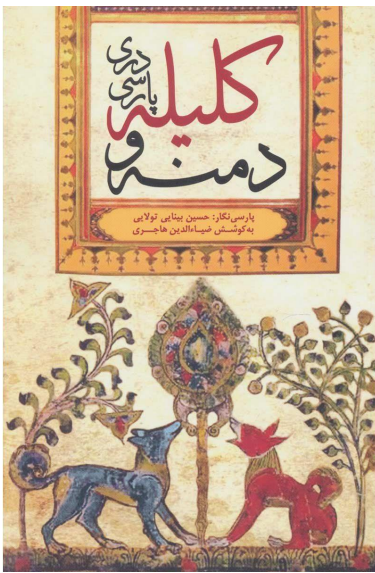 کلیله
و دمنه
پارسی دری
پارسی‌نگار: حسین بینایی تولایی
به‌کوشش ضیاءالدین هاجری